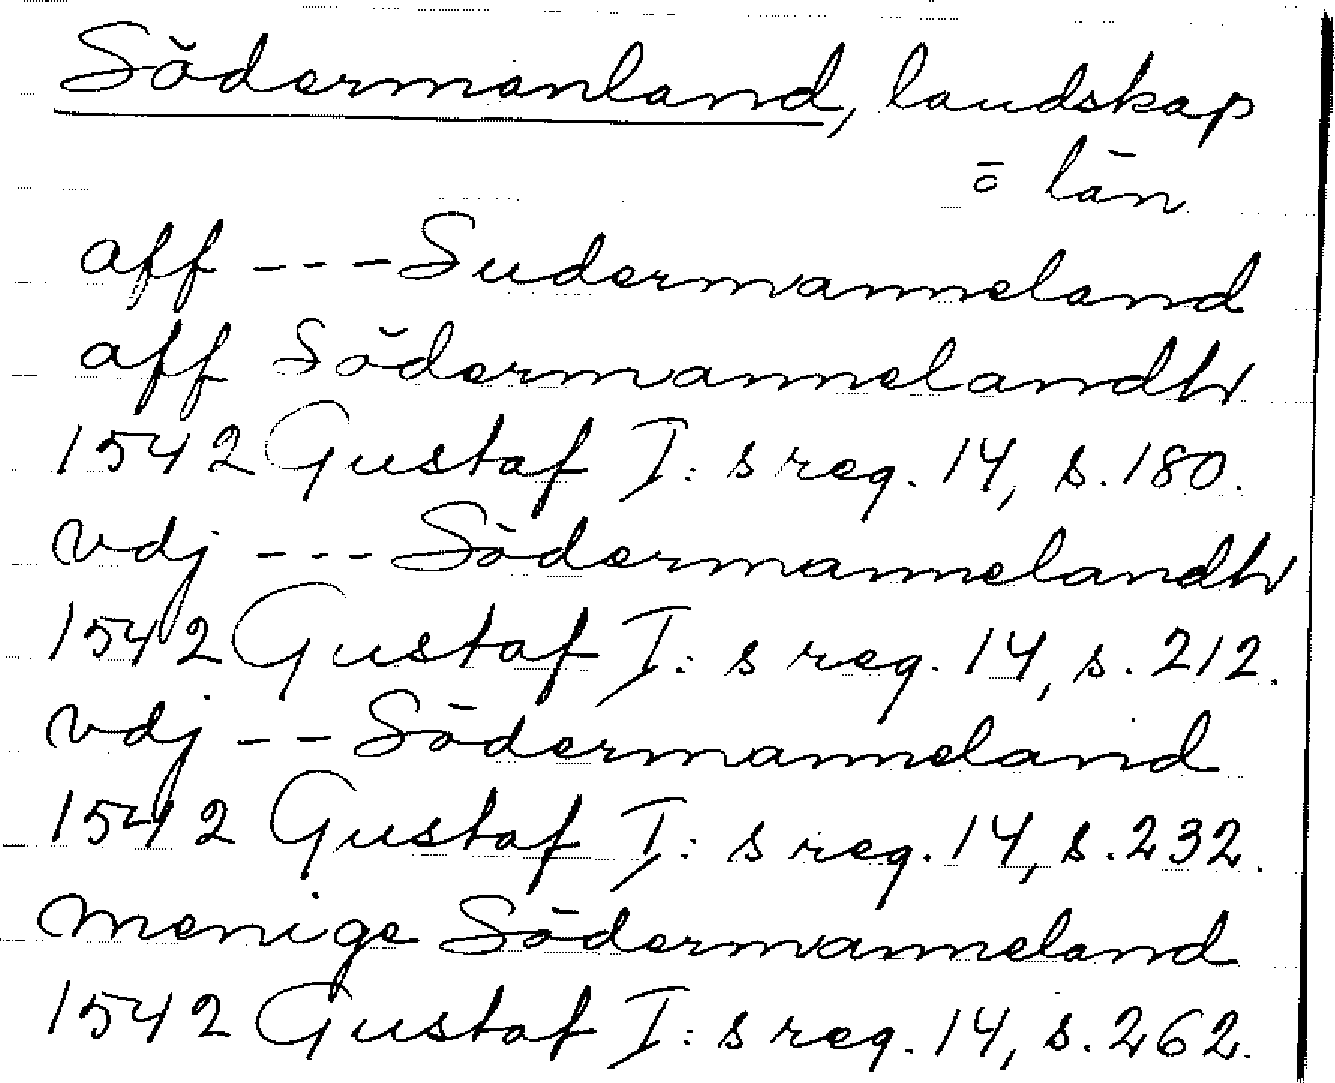 Södermanland, landskap
o län
aff --- Sudermanneland
aff Södermannelandh
1542 Gustaf I:s reg. 14, s. 180.
vdj --- Södermannelandh
1542 Gustaf I:s reg. 14, s. 212.
vdj -- Södermanneland
1542 Gustaf I:s reg. 14, s. 232.
menige Södermanneland
1542 Gustaf I:s reg. 14, s. 262.